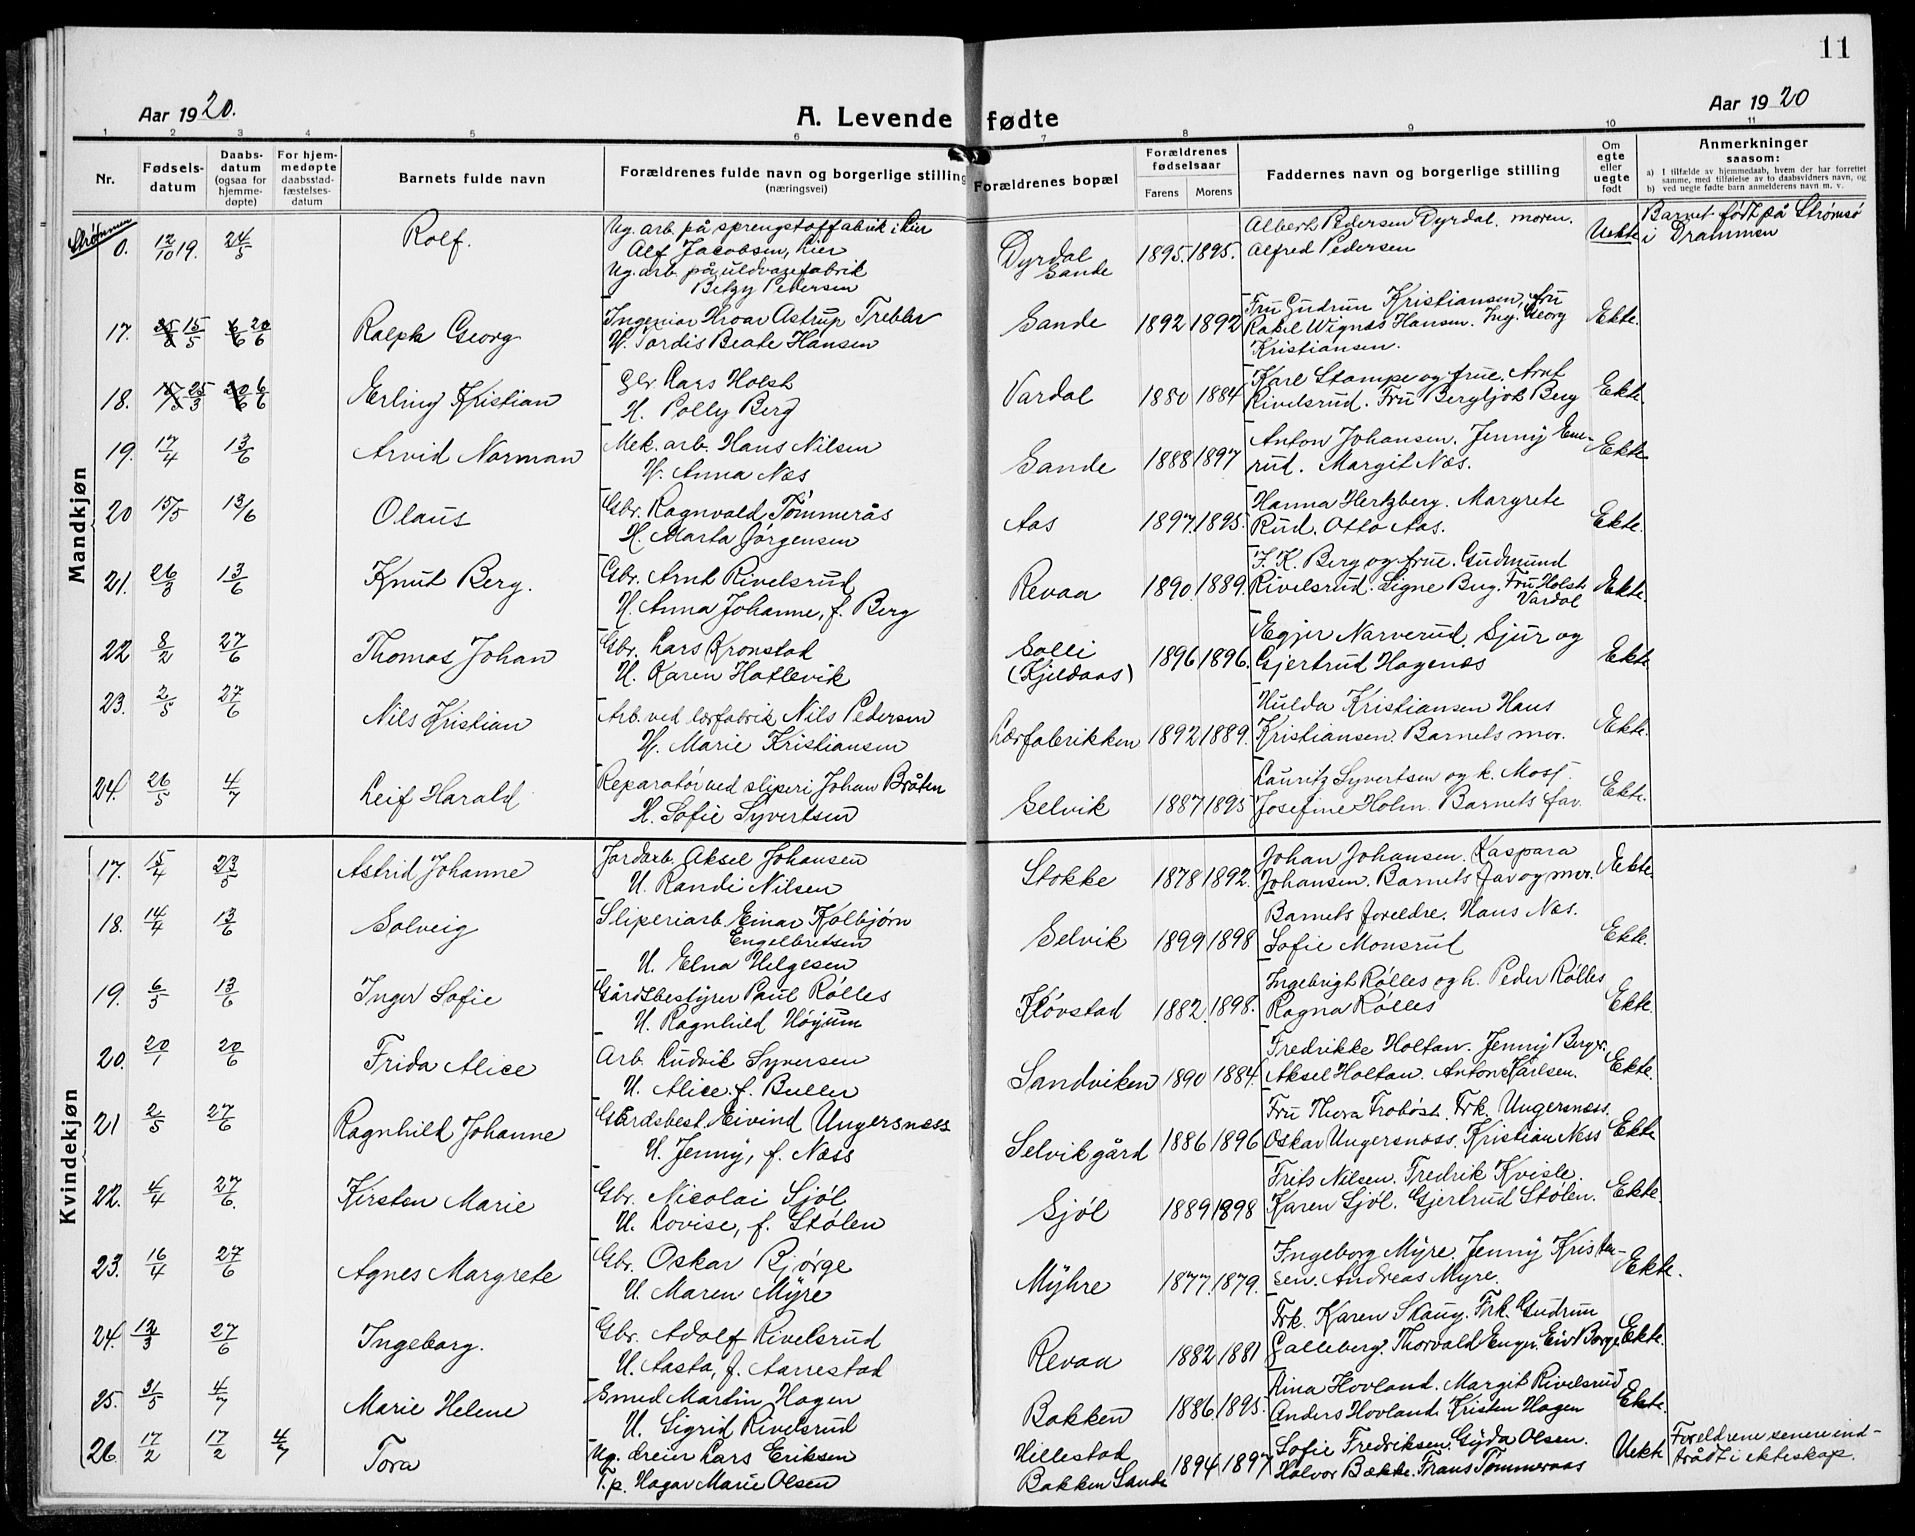 11
Aar 1920.
A. Levende fødte
Aar 1920
1 2 3 4 5 6 7 8 9 10 11
Nr. Fødsels-datum Daabs-datum (ogsaa for hjemme-døpte) For hjem-medøpte daabsstad-fæstelses-datum Barnets fulde navn Forældrenes fulde navn og borgerlige stilling (næringsvei) Forældrenes bopæl Forældrenes fødselsaar Farens Morens Faddernes navn og borgerlige stilling Om egte eller uegte født Anmerkninger saasom:
a) I tilfælde av hjemmedaab, hvem der har forrettet samme, med tilføielse av to daabsvidners navn, og
b) ved uegte fødte barn anmelderens navn m. v.
Mandkjøn
Strømmen
0. 12/10 19. 24/5 Rolf. Ug. arb. på sprengstoffabrik i Lier
Alf Jacobsen, Lier
Ug. arb. på uldvarefabrik
Betzy Pedersen
Dyrdal Sande 1895. 1895. Albert Pedersen Dyrdal. moren.
Alfred Pedersen Uekte Barnet født på Strømsø
i Drammen
17. 15/5 20/6 Ralph Georg Ingeniør Hroar Astrup Trebler
H. Tordis Beate Hansen
Sande 1892 1892 Fru Gudrun Kristiansen, fru
Rakel Wignæs Hansen. Ing. Georg
Kristiansen. Ekte.
18. 25/3 6/6 Erling Kristian Gbr. Lars Holst
H. Polly Berg
Vardal 1880 1884 Karl Stampe og frue. Arnt
Rivelsrud. Fru Bergljot Berg Ekte.
19. 17/4 13/6 Arvid Norman Mek. arb. Hans Nilsen
H. Anna Næs
Sande 1888 1897 Anton Johansen. Jenny Ene-
rud. Margit Næs. Ekte
20 15/5 13/6 Olaus Gbr. Ragnvald Tømmerås
H. Marta Jørgensen
Aas 1897. 1895. Hanna Hertzberg. Margrete
Rud. Otto Aas. Ekte.
21. 26/3 13/6 Knut Berg. Gbr. Arnt Rivelsrud
H. Anna Johanne, f. Berg
Revaa 1890. 1889. F. K. Berg og frue. Gudmund
Rivelsrud. Signe Bug. Fru Holst
Vardal Ekte.
22 8/2 27/6 Thomas Johan Gbr. Lars Kronstad
H. Karen Hatlevik
Solli
(Kjeldaas) 1896 1896. Egjer Narverud. Sjur og
Gjertrud Hagenæs Ekte
23. 2/5 27/6 Nils Kristian Arb. ved lærfabrik Nils Pedersen
H. Marie Kristiansen
Lærfabrikken 1892 1889. Hulda Kristiansen Hans
Kristiansen. Barnets mor. Ekte.
24. 26/5 4/7 Leif Harald Reparatør ved sliperi Johan Bråten
H. Sofie Syvertsen
Selvik 1887 1895 Lauritz Syvertsen og h. Moss.
Josefine Holm. Barnets far. Ekte.
Kvindekjøn
17. 15/4 23/5 Astrid Johanne Jordarb. Aksel Johansen
H. Randi Nilsen
Stokke 1878 1892. Johan Johansen. Kaspara
Johansen. Barnets far og mor. Ekte.
18. 14/4 13/6 Solveig Sliperiarb. Einar Kolbjørn
Engelbretsen
H. Elna Helgesen
Selvik 1899 1898 Barnets foreldre. Hans Næs.
Sofie Monsrud Ekte.
19. 6/5 13/6 Inger Sofie Gårdsbestyrer Paul Rølles
H. Ragnhild Høyum
Kløvstad 1882. 1898. Ingebrigt Rølles og h. Peder Rølles
Ragna Rølles Ekte.
20. 20/1 20/6 Frida Alice Arb. Ludvik Syversen
H. Alice f. Buller
Sandviken 1890 1884. Fredrikke Holtan. Jenny Berger.
Aksel Holtan. Anton Karlsen. Ekte.
21 2/5 27/6 Ragnhild Johanne Gårdsbest. Eivind Ungersnæss
H. Jenny, f. Næss
Selvik gård 1886 1896 Fru Thora Frobøst. Frk. Ungersnæss.
Oskar Ungersnæss. Kristian Ness Ekte
22. 4/4 27/6. Kirsten Marie Gbr. Nicolai Sjøl
H. Lovise, f. Stølen
Sjøl 1889 1898 Frits Nilsen. Fredrik Kvisle.
Karen Sjøl. Gjertrud Stølen. Ekte.
23. 16/4 27/6 Agnes Margrete Gbr. Oskar Bjørge
H. Maren Myre
Myhre 1877. 1879. Ingeborg Myre. Jenny Kristen-
sen. Andreas Myre. Ekte.
24. 12/3 27/6 Ingeborg. Gbr. Adolf Rivelsrud
H. Aasta, f. Aarrestad
Revaa 1882 1881 Frk. Karen Skaug. Frk. Gudrun
Galleberg. Thorvald Engn. Eiv. Borge Ekte.
25. 31/5 4/7 Marie Helene Smed Martin Hagen
H. Sigrid Rivelsrud
Bakken 1886. 1895. Aina Hovland. Margit Rivelsrud
Anders Hovland. Kristen Hagen Ekte.
26. 17/2 17/2 4/7 Tora Ug. dreier Lars Eriksen
T.p. Hagar Marie Olsen
Hillestad
Bakken Sande 1894 1897 Sofie Fredriksen. Gyda Olsen.
Halvor Bække. Frans Tømmeraas Uekte Foreldrene senere ind-
trådt i ekteskap.